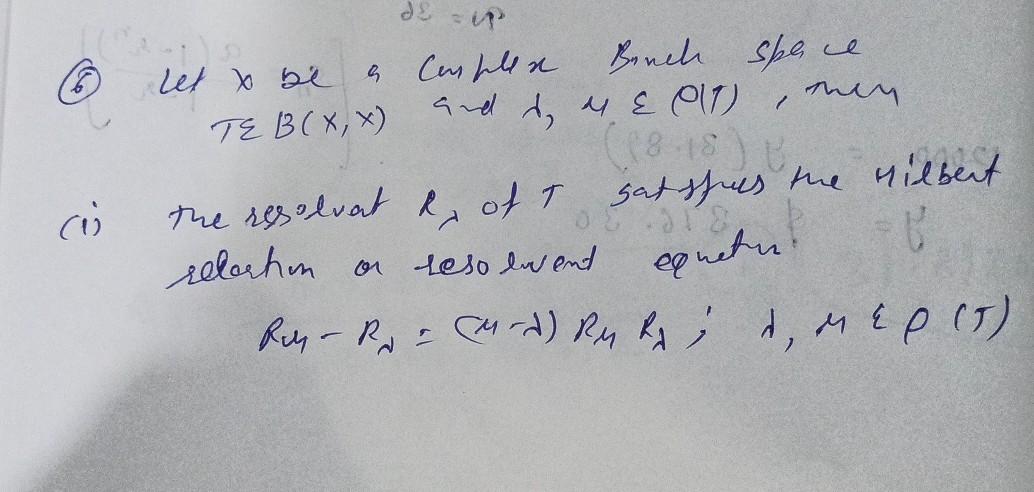 ⑥ Let X be a Complex Banch space
T ∈ B(X, X) and λ, μ ∈ ρ(T), then
(i) The resolvat R_λ of T satisfies the Hilbert
relation or resolvent equation
R_μ - R_λ = (μ-λ) R_μ R_λ ; λ, μ ∈ ρ(T)